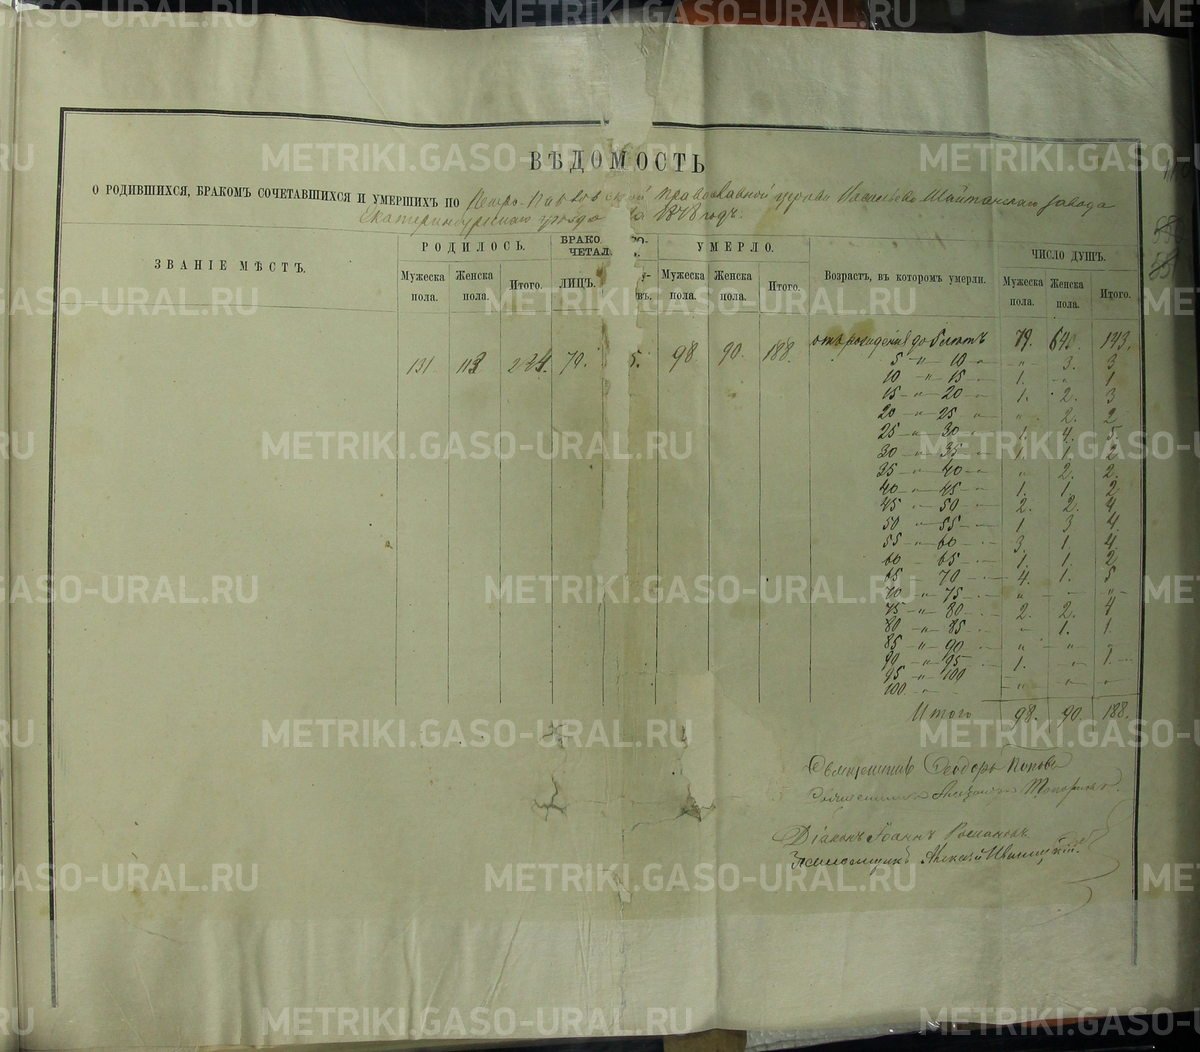 ВѢДОМОСТЬ
О РОДИВШИХСЯ, БРАКОМЪ СОЧЕТАВШИХСЯ И УМЕРШИХЪ ПО Петро-Павловской православной церкви Васильево Шайтанскаго завода
Екатеринбургскаго уѣзда 1878 годъ.
ЗВАНІЕ МѢСТЪ. РОДИЛОСЬ. БРАКО СО- ЧЕТАЛ УМЕРЛО. Возрастъ, въ которомъ умерли. ЧИСЛО ДУШЪ.
Мужеска пола. Женска пола. Итого. ЛИЦЪ. Мужеска пола. Женска пола. Итого. Мужеска пола. Женска пола. Итого.
отъ рожденія до 5 лѣтъ 79. 64. 143.
131 113 79. 5. 98 90. 188.
5 — " — 10 — " — " 3. 3
10 — " — 15 — 1. — " — 1
15 — " — 20 — " 1. 2. 3
20 — " — 25 — " " 2. 2
25 — " — 30 — " 1. 4. 5.
30 — " — 35 — " 1. 1. 2
35 — " — 40 — " " 2. 2.
40 — " — 45 — " 1. 1. 2
45 — " — 50 — " 2. 2. 4
50 — " — 55 — " 1 3 4.
55 — " — 60 — " 3. 1 4.
60 — 65 — 1. 1. 2
65 70 — 4. 1. 5
70 — " — 75 — " — "
75 — " — 80 — 2. 2. 4
80 — " — 85 — " 1. 1.
85 — " — 90 — " " "
90 — " — 95 — 1. " 1. —
95 — " — 100 " " "
100 — "
Итого 98. 90. 188.
Священникъ Ѳеодоръ Поповъ
Священникъ
Діаконъ Іоаннъ
Псаломщикъ Алексѣй
METRIKI.GASO-URAL.RU